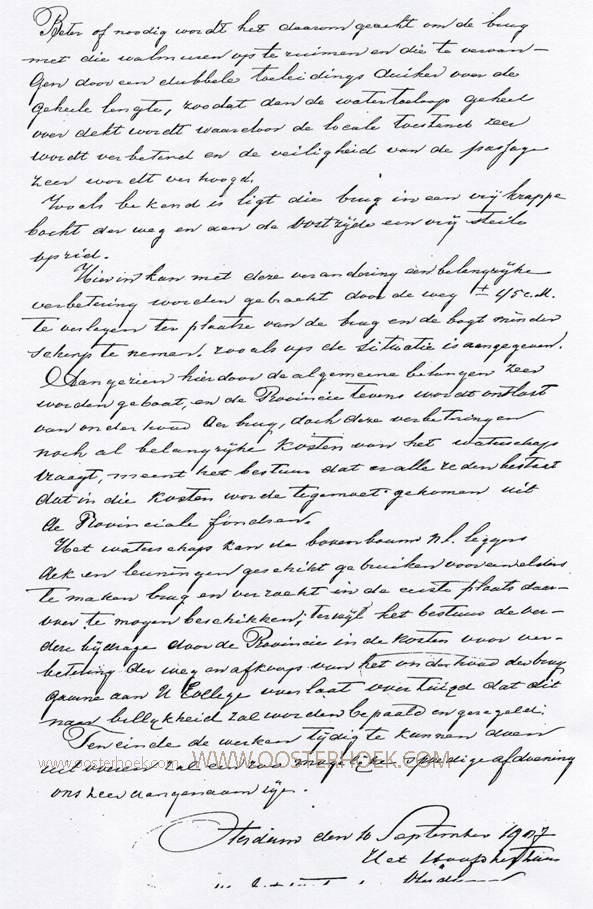 Beter of noodig wordt het daarom geacht om de brug
met die walmuren op te ruimen en die te vervan-
gen door een dubbele toeleidings duiker over de
geheele lengte, zoodat dan de watertoeloop geheel
over dekt wordt waardoor de locale toestand zeer
wordt verbeterd en de veiligheid van de passage
zeer wordt verhoogd.
Zooals bekend is ligt die brug in een vrij krappe
bocht der weg en aan de Oostzijde een vrij steile
oprid.
Hierin kan met deze verandering een belangrijke
verbetering worden gebracht door de weg ± 45 c.M.
te verleggen ter plaatse van de brug en de bogt minder
scherp te nemen. zooals op de situatie is aangegeven.
Aangezien hierdoor de algemeene belangen zeer
worden gebaat, en de Provincie tevens wordt ontlast
van onderhoud der brug, doch deze verbeteringen
noch al belangrijke kosten van het waterschap
vraagt, meent het bestuur dat er alle reden bestaat
dat in die kosten worde tegemoet gekomen uit
de Provinciale fondsen.
Het waterschap kan de bovenbouw n.l. leggers
dek en leuningen geschikt gebruiken voor een elders
te maken brug en verzoekt in de eerste plaats daar-
over te mogen beschikken; terwijl het bestuur de ver-
dere bijdrage door de Provincie in de kosten voor ver-
betering der weg en afkoop van het onderhoud der brug
gaarne aan U College overlaat overtuigd dat dit
naar billykheid zal worden bepaald en geregeld.
Ten einde de werken tijdig te kunnen doen
uitvoeren zal een zoo mogelijke spoedige afdoening
ons zeer aangenaam zijn.
www.oosterhoek.com WWW.OOSTERHOEK.COM
den 10 September 1907
Het